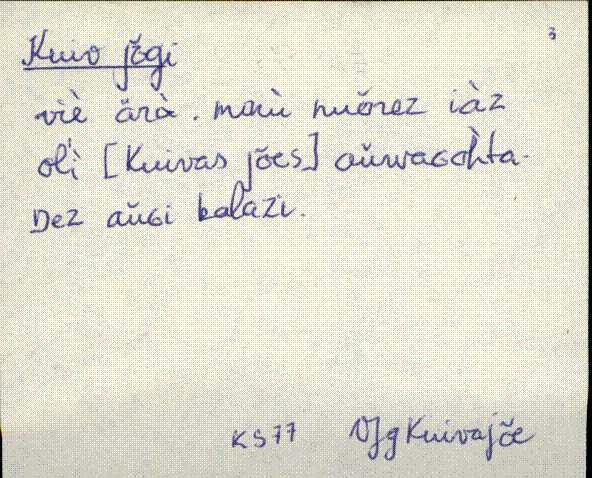 3
Kuio jõgi
viè ärà. monù nuõrez iàz
oĺì [Kuivas jões] aũwaɢɢh̀ta.
Dez aũɢi kalazi.
KS77 VJg Kuivajõe